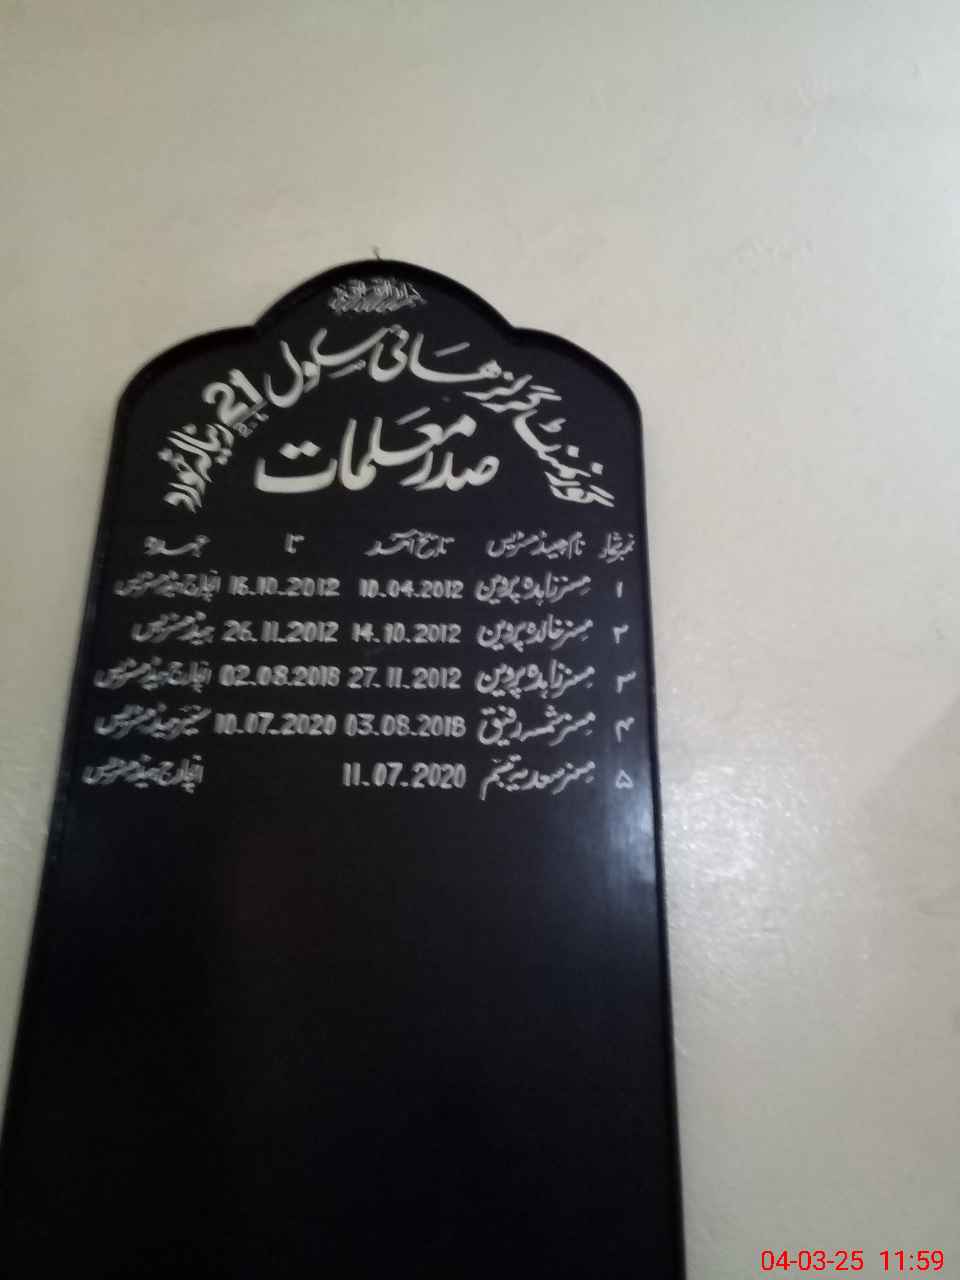 گورنمنٹ گرلز ھائی سکول 21 رینالہ خورد
صدر معلمات
نمبر شمار نام ہیڈ مسٹریس تاریخ آمد تا عہدہ
۱ مسز زاہدہ پروین 10.04.2012 16.10.2012 انچارج ہیڈ مسٹریس
۲ مسز خالدہ پروین 14.10.2012 26.11.2012 ہیڈ مسٹریس
۳ مسز زاہدہ پروین 27.11.2012 02.08.2018 انچارج ہیڈ مسٹریس
۴ مسز شمسہ رفیق 03.08.2018 10.07.2020 سینئر ہیڈ مسٹریس
۵ مسز سعدیہ تبسم 11.07.2020 انچارج ہیڈ مسٹریس
04-03-25 11:59